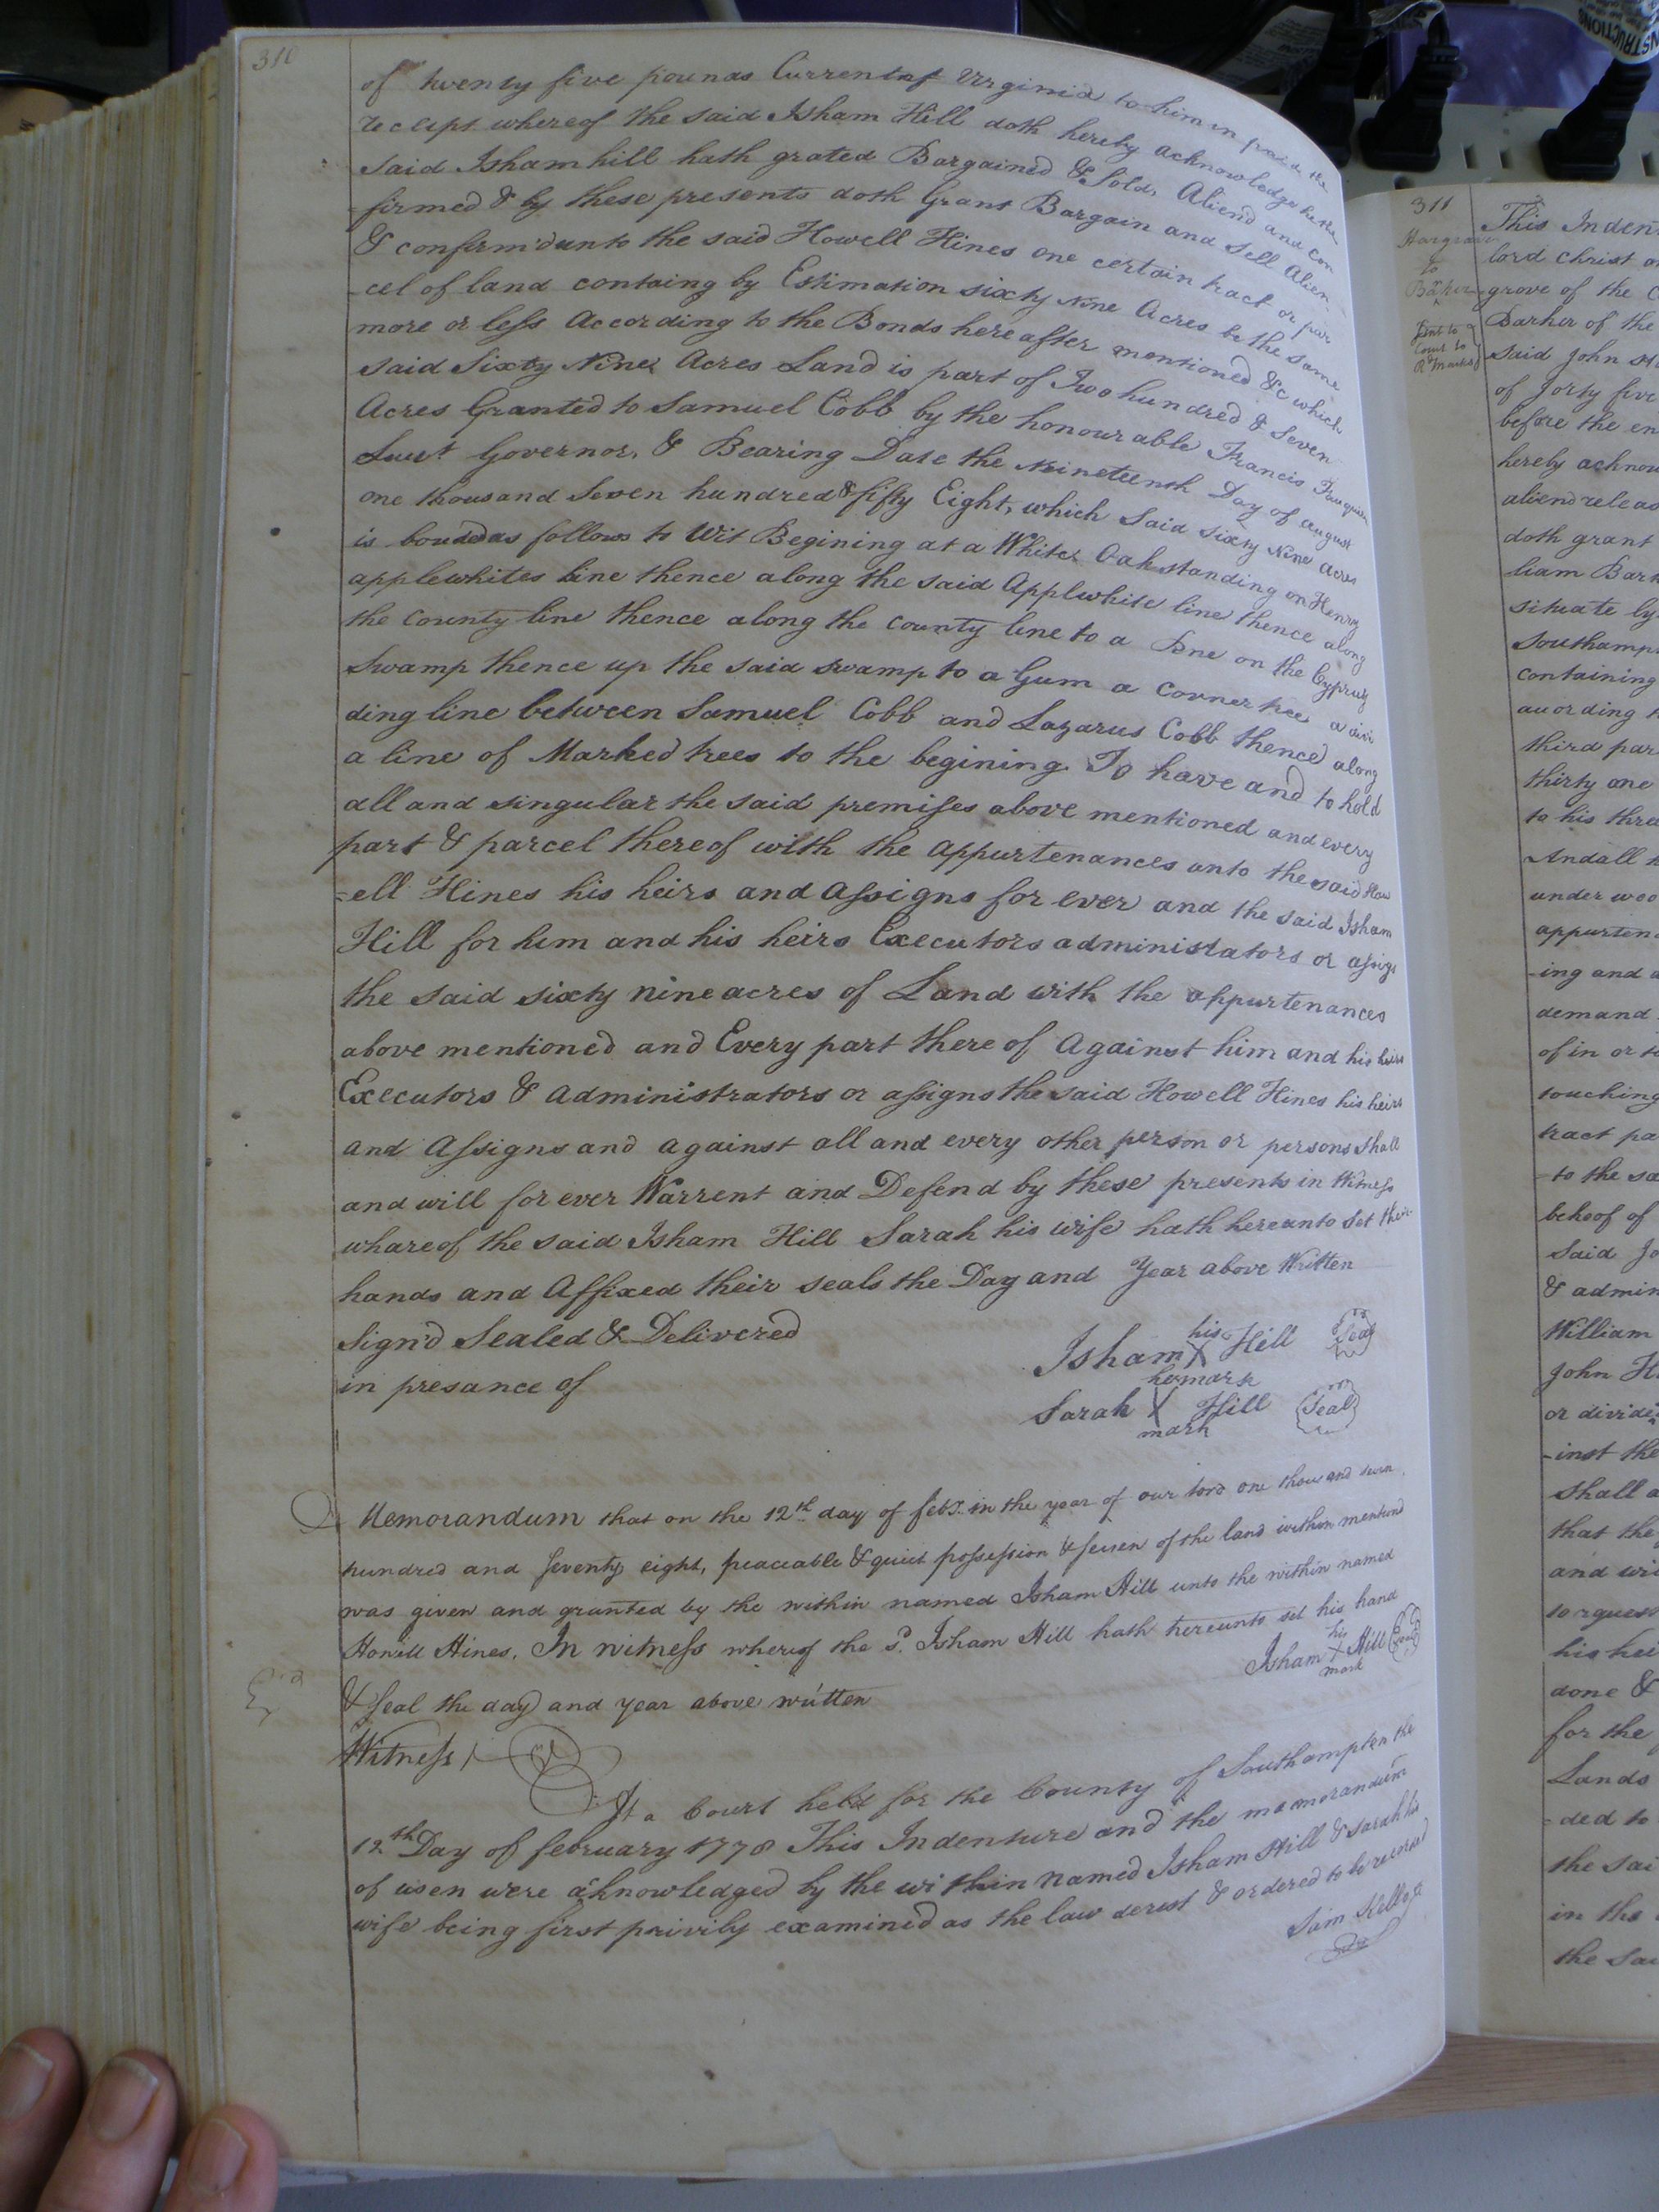 310
of twenty five pounds Current of Virginia to him in paid the
receipt whereof the said Isham Hill doth hereby acknowledge he the
said Isham hill hath grated Bargained & Sold, Aliend and con
=firmed & by these presents doth Grant Bargain and Sell Alien
& confirm'd unto the said Howell Hines one certain tract or par
-cel of land containg by Estimation sixty Nine Acres be the same
more or less According to the Bonds hereafter mentioned &c which
said Sixty Nine Acres Land is part of Two hundred & Seven
Acres Granted to Samuel Cobb by the honourable Francis Fauquier
Governor, & Bearing Date the Nineteenth Day of august
one thousand Seven hundred & fifty Eight, which Said Sixty Nine acres
is bouded as follows to Wit Begining at a White Oak standing on Henry
applewhites line thence along the said Applwhite line thence along
the County line thence along the county line to a Pine on the Cyprus
Swamp thence up the said swamp to a Gum a Corner tree a divi
ding line between Samuel Cobb and Lazarus Cobb thence along
a line of Marked trees to the begining To have and to hold
all and singular the said premises above mentioned and every
part & parcel thereof with the appurtenances unto the said How
=ell Hines his heirs and assigns for ever and the said Isham
Hill for him and his heirs Executors administators or assigs
the said sixty nine acres of Land with the appurtenances
above mentioned and Every part there of against him and his heirs
Executors & administrators or assigns the said Howell Hines his heirs
and Assigns and against all and every other person or persons shall
and will for ever Warrent and Defend by these presents in Witness
whareof the said Isham Hill Sarah his wife hath hereunto set their
hands and Affixed their seals the Day and Year above Written
Sign'd Sealed & Delivered
in presance of
his
Isham X Hill Seal
her mark
Sarah X Hill Seal
mark
Memorandum that on the 12th day of febr. in the year of our lord one thousand seven
hundred and Seventy eight, peaceable & quiet possession & seisen of the land within mentiond
was given and granted by the within named Isham Hill unto the within named
Howell Hines, In witness whereof the sd. Isham Hill hath hereunto set his hand
& seal the day and year above written
his
Isham X Hill Seal
mark
Witness
At a Court held for the County of Southampton the
12th Day of february 1778 This Indenture and the memorandum
of were acknowledged by the within named Isham Hill & Sarah his
wife being first privily examined as the law & ordered to be recorded
Sam Kello
311
Hargrave
to
Barker
This Inden
lord Christ
grove of the C
Barker of the
said John
of forty five
before the en
hereby acknow
aliend releas
doth grant
liam Bark
situate ly
Southamp
containing
according
third par
thirty one
to his thre
And all
under woo
appurten
-ing and a
demand
of in or
touching
tract pa
to the sa
behoof of
said Jo
& admin
William
John H
or dividi
-inst the
shall a
that the
and wi
to request
his hei
done &
for the
Lands
=ded to
the sai
in the
the sai